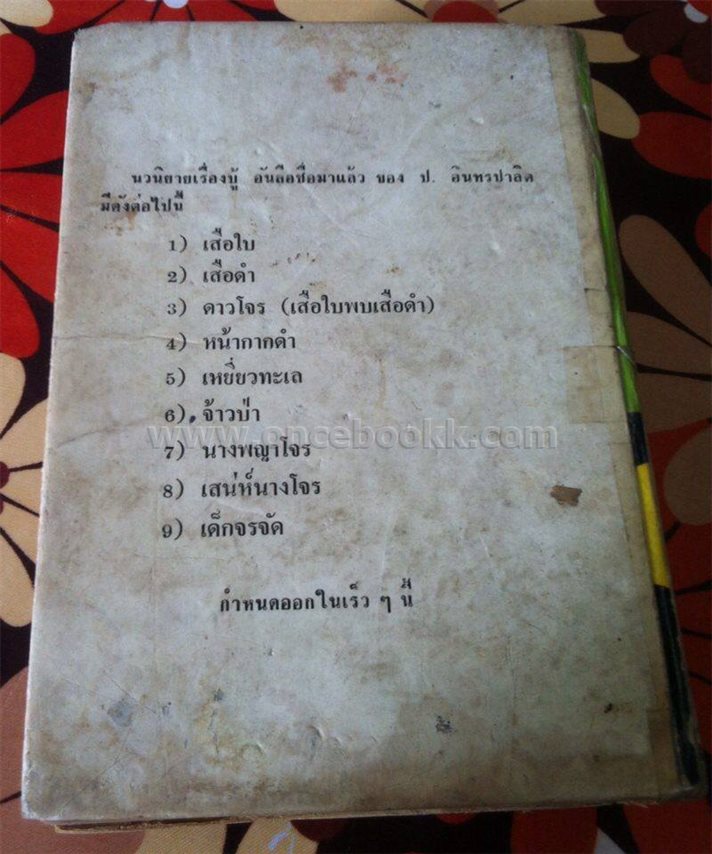 นวนิยายเรื่องบู๊ อันลือชื่อมาแล้ว ของ ป. อินทรปาลิต
มีดังต่อไปนี้
1) เสือใบ
2) เสือดำ
3) ดาวโจร (เสือใบพบเสือดำ)
4) หน้ากากดำ
5) เหยี่ยวทะเล
6) จ้าวป่า
www.oncebookk.com
7) นางพญาโจร
8) เสน่ห์นางโจร
9) เด็กจรจัด
กำหนดออกในเร็ว ๆ นี้